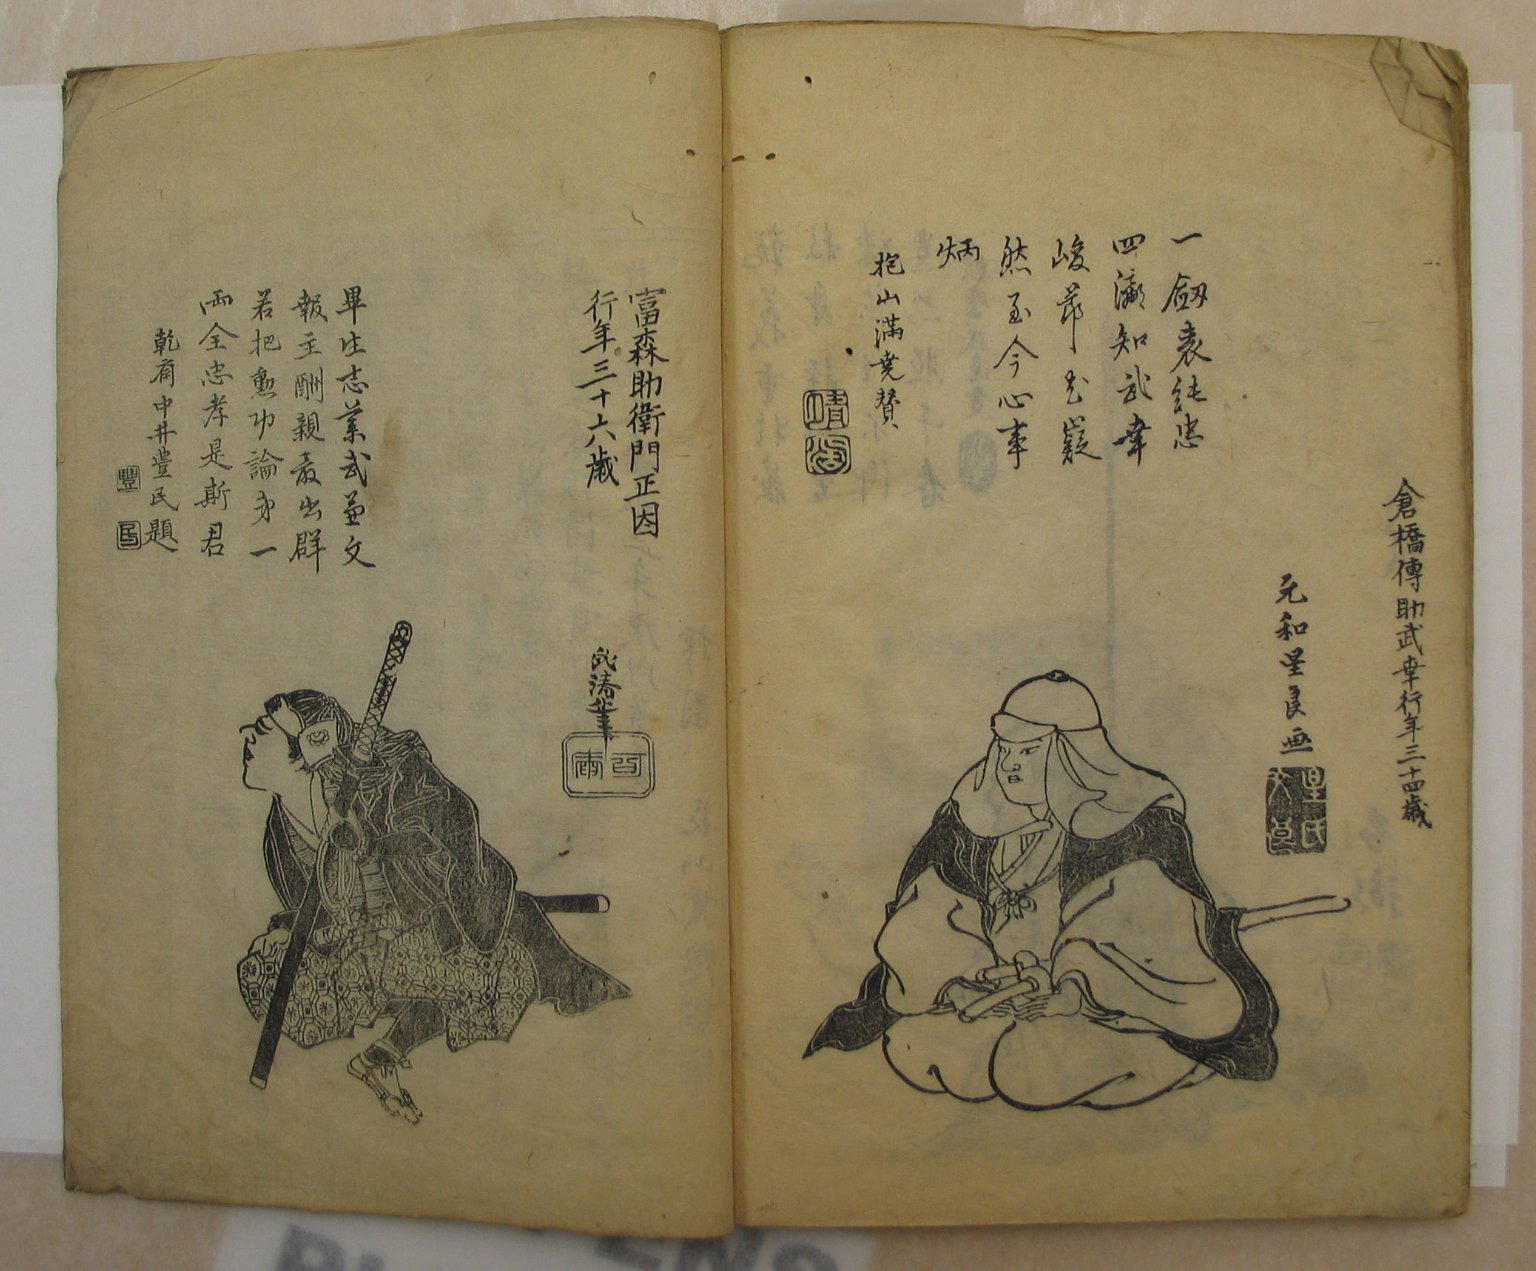 倉橋傳助武幸行年三十四歳
元和星良画
一劔表純忠
四瀛知武幸
峻節尤嶷
然至今心事
炳
抱山滿堯賛
富森助衛門正因
行年三十六歳
畢生志業武兼文
報主酬親最出群
若把勲功論第一
両全忠孝是斯君
乾齋中井豊民題
豐
民
筆
百